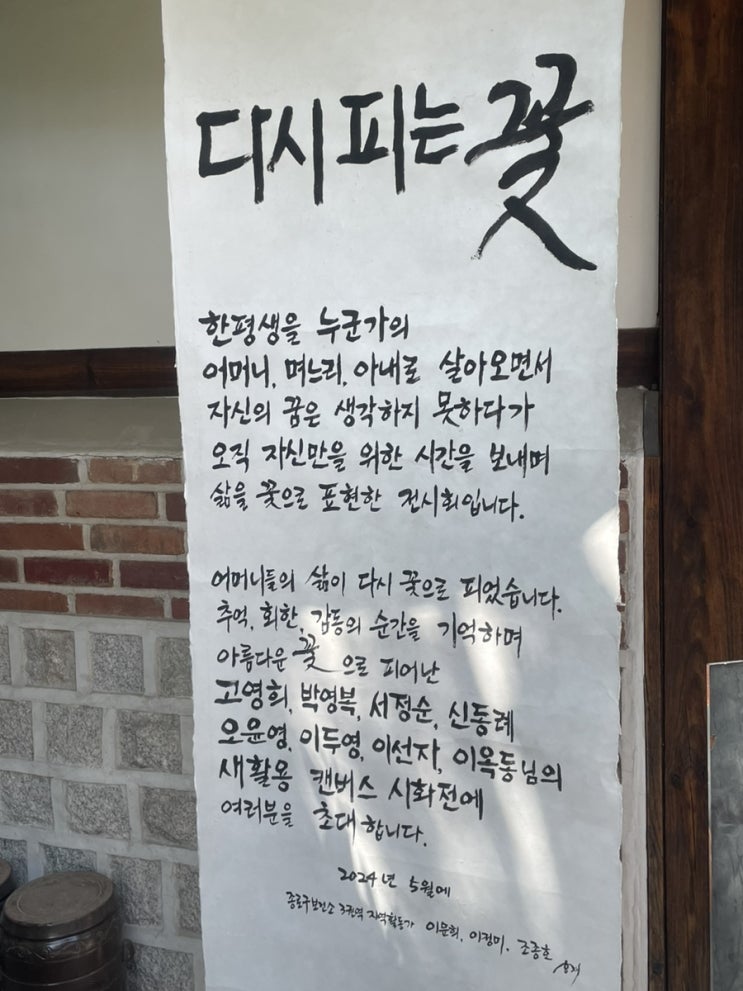 다시 피는 꽃
한평생을 누군가의
어머니, 며느리, 아내로 살아오면서
자신의 꿈은 생각하지 못하다가
오직 자신만을 위한 시간을 보내며
삶을 꽃으로 표현한 전시회입니다.
어머니들의 삶이 다시 꽃으로 피었습니다.
추억, 회한, 감동의 순간을 기억하며
아름다운 꽃으로 피어난
고영희, 박영복, 서정순, 신동례
오윤영, 이두영, 이선자, 이옥동님의
새활용 캔버스 시화전에
여러분을 초대합니다.
2024년 5월에
종로구보건소 3권역 지역활동가 이문희, 이정미, 조종호